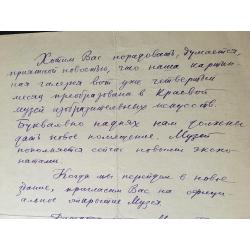 Хотим Вас порадовать, думается,
приятной новостью, что наша картин-
ная галерея вот уже четвертый
месяц преобразована в Краевой
музей изобразительных искусств.
Буквально на днях нам должны
дать новое помещение. Музей
пополняется сейчас новыми экспо-
натами.
Когда мы перейдем в новое
здание, пригласим Вас на офици-
альное открытие Музея.